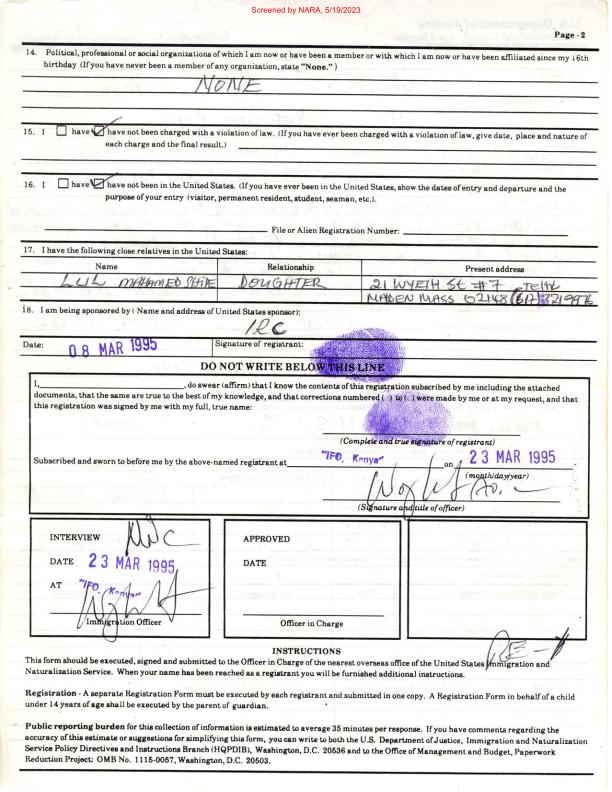 Screened by NARA, 5/19/2023
Page - 2
14. Political, professional or social organizations of which I am now or have been a member or with which I am now or have been affiliated since my 16th
birthday (If you have never been a member of any organization, state "None.")
NONE
15. I have have not been charged with a violation of law. (If you have ever been charged with a violation of law, give date, place and nature of
each charge and the final result.)
16. I have have not been in the United States. (If you have ever been in the United States, show the dates of entry and departure and the
purpose of your entry (visitor, permanent resident, student, seaman, etc.).
File or Alien Registration Number:
17. I have the following close relatives in the United States:
Name Relationship Present address
LUL MAHAMED DOUGHTER 21 WYETH St #7
MADEN MASS 02148
18. I am being sponsored by (Name and address of United States sponsor):
IRC
Date: 08 MAR 1995 Signature of registrant:
DO NOT WRITE BELOW THIS LINE
I, , do swear (affirm) that I know the contents of this registration subscribed by me including the attached
documents, that the same are true to the best of my knowledge, and that corrections numbered ( ) to ( ) were made by me or at my request, and that
this registration was signed by me with my full, true name:
(Complete and true signature of registrant)
Subscribed and sworn to before me by the above-named registrant at "IFO, Kenya" on 23 MAR 1995
(month/day/year)
(Signature and title of officer)
INTERVIEW
DATE 23 MAR 1995
AT "IFO, Kenya"
Immigration Officer
APPROVED
DATE
Officer in Charge
INSTRUCTIONS
This form should be executed, signed and submitted to the Officer in Charge of the nearest overseas office of the United States Immigration and
Naturalization Service. When your name has been reached as a registrant you will be furnished additional instructions.
Registration - A separate Registration Form must be executed by each registrant and submitted in one copy. A Registration Form in behalf of a child
under 14 years of age shall be executed by the parent of guardian.
Public reporting burden for this collection of information is estimated to average 35 minutes per response. If you have comments regarding the
accuracy of this estimate or suggestions for simplifying this form, you can write to both the U.S. Department of Justice, Immigration and Naturalization
Service Policy Directives and Instructions Branch (HQPDIB), Washington, D.C. 20536 and to the Office of Management and Budget, Paperwork
Reduction Project: OMB No. 1115-0057, Washington, D.C. 20503.